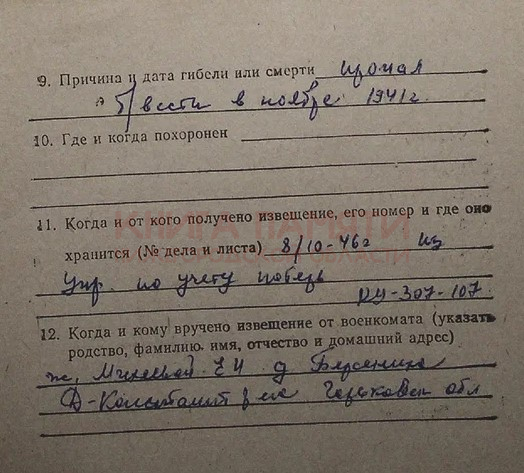 9. Причина и дата гибели или смерти пропал
б/вести в ноябре 1941г.
10. Где и когда похоронен
КНИГА ПАМЯТИ
11. Когда и от кого получено извещение, его номер и где оно
хранится (№ дела и листа) 8/10-46г из
Упр. по учету потерь
ру-307-107.
12. Когда и кому вручено извещение от военкомата (указать
родство, фамилию, имя, отчество и домашний адрес)
ж, Михеевой Е И д
Д-Константин Горьковск обл